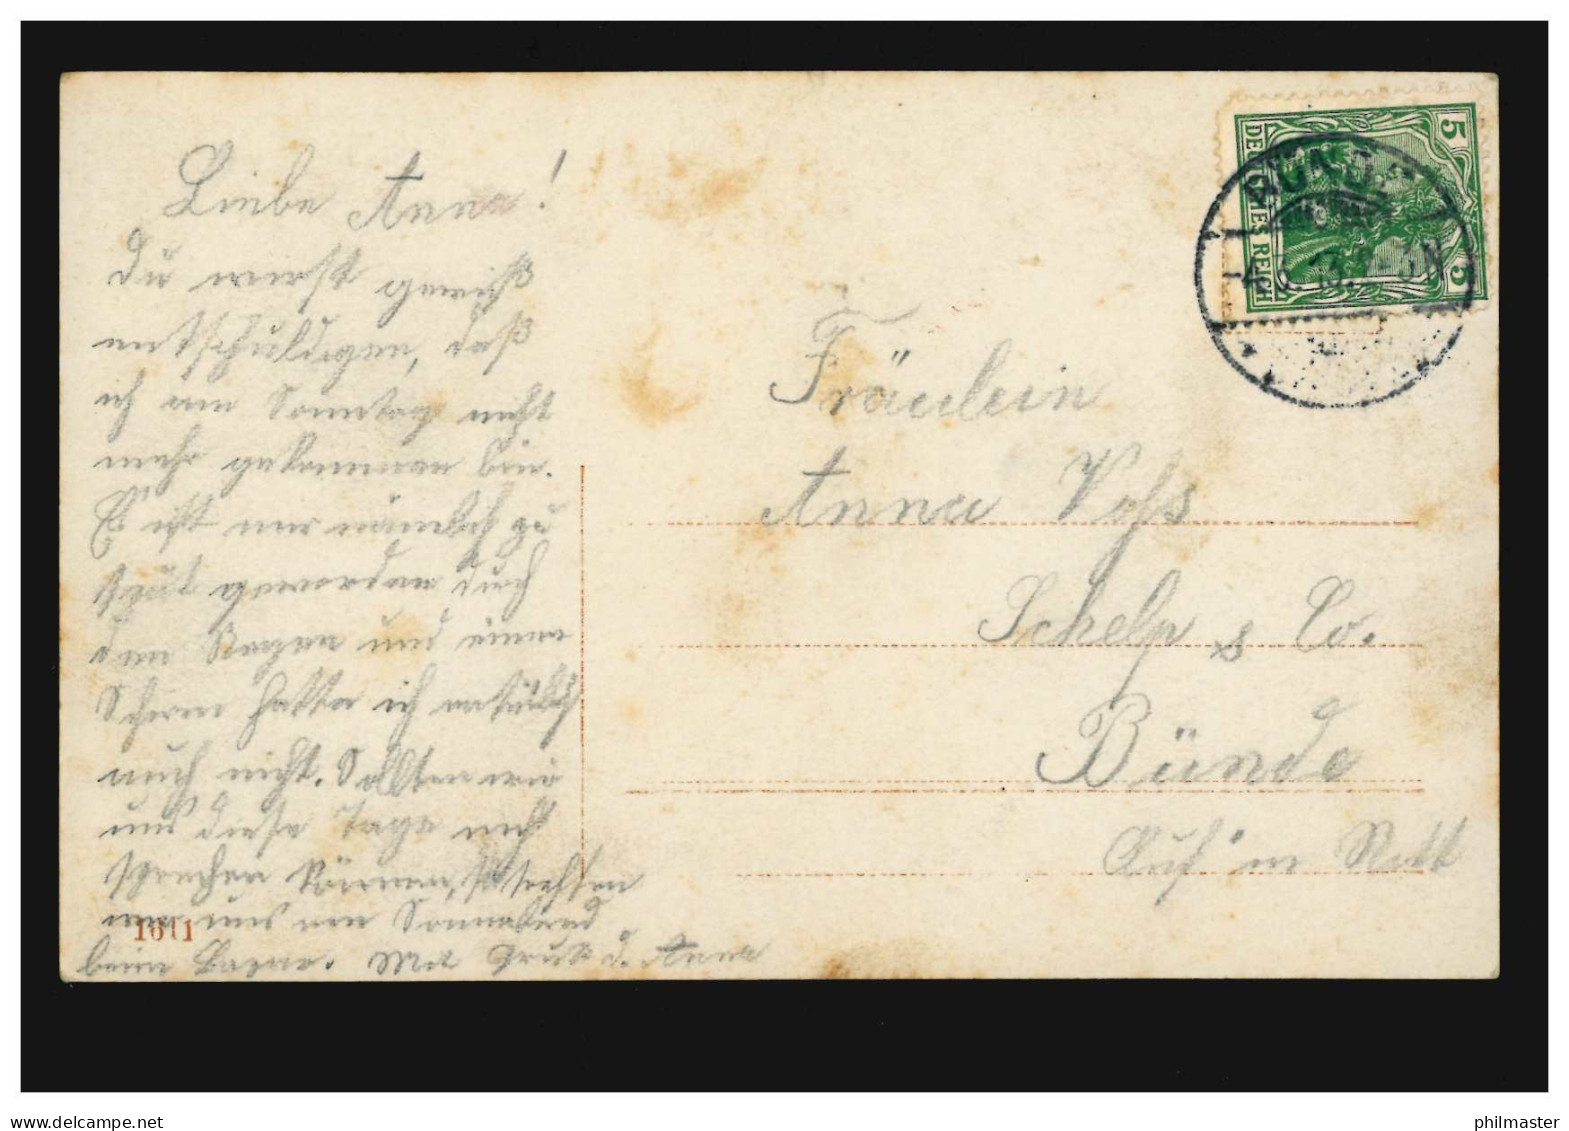 Liebe Anna!
Du wirst gewiß
entschuldigen, daß
ich am Sonntag nicht
mehr gekommen bin.
Es ist mir nämlich zu
spät geworden durch
den Regen und einen
Schirm hatte ich natürlich
auch nicht. Sollten wir
uns diese Tage nicht
sprechen können, so treffen
wir uns am Sonnabend
beim Bazar. Mit Gruß d. Anna
1611
5 5
DEUTSCHES REICH
BÜNDE
3N
Fräulein
Anna Voss
Schelp & Co.
Bünde
www.delcampe.net
philmaster